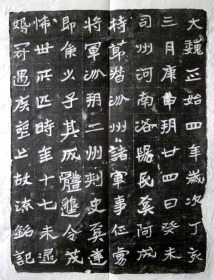 大魏正始四年歲次丁亥
三月庚申朔廿四日癸未
司州河南洛陽民奚阿成
持節督汾州諸軍事征虜
將軍汾朔二州刺史奚達
即少子其成體令茂
世所匹時年十七未
婚遇上故流銘記